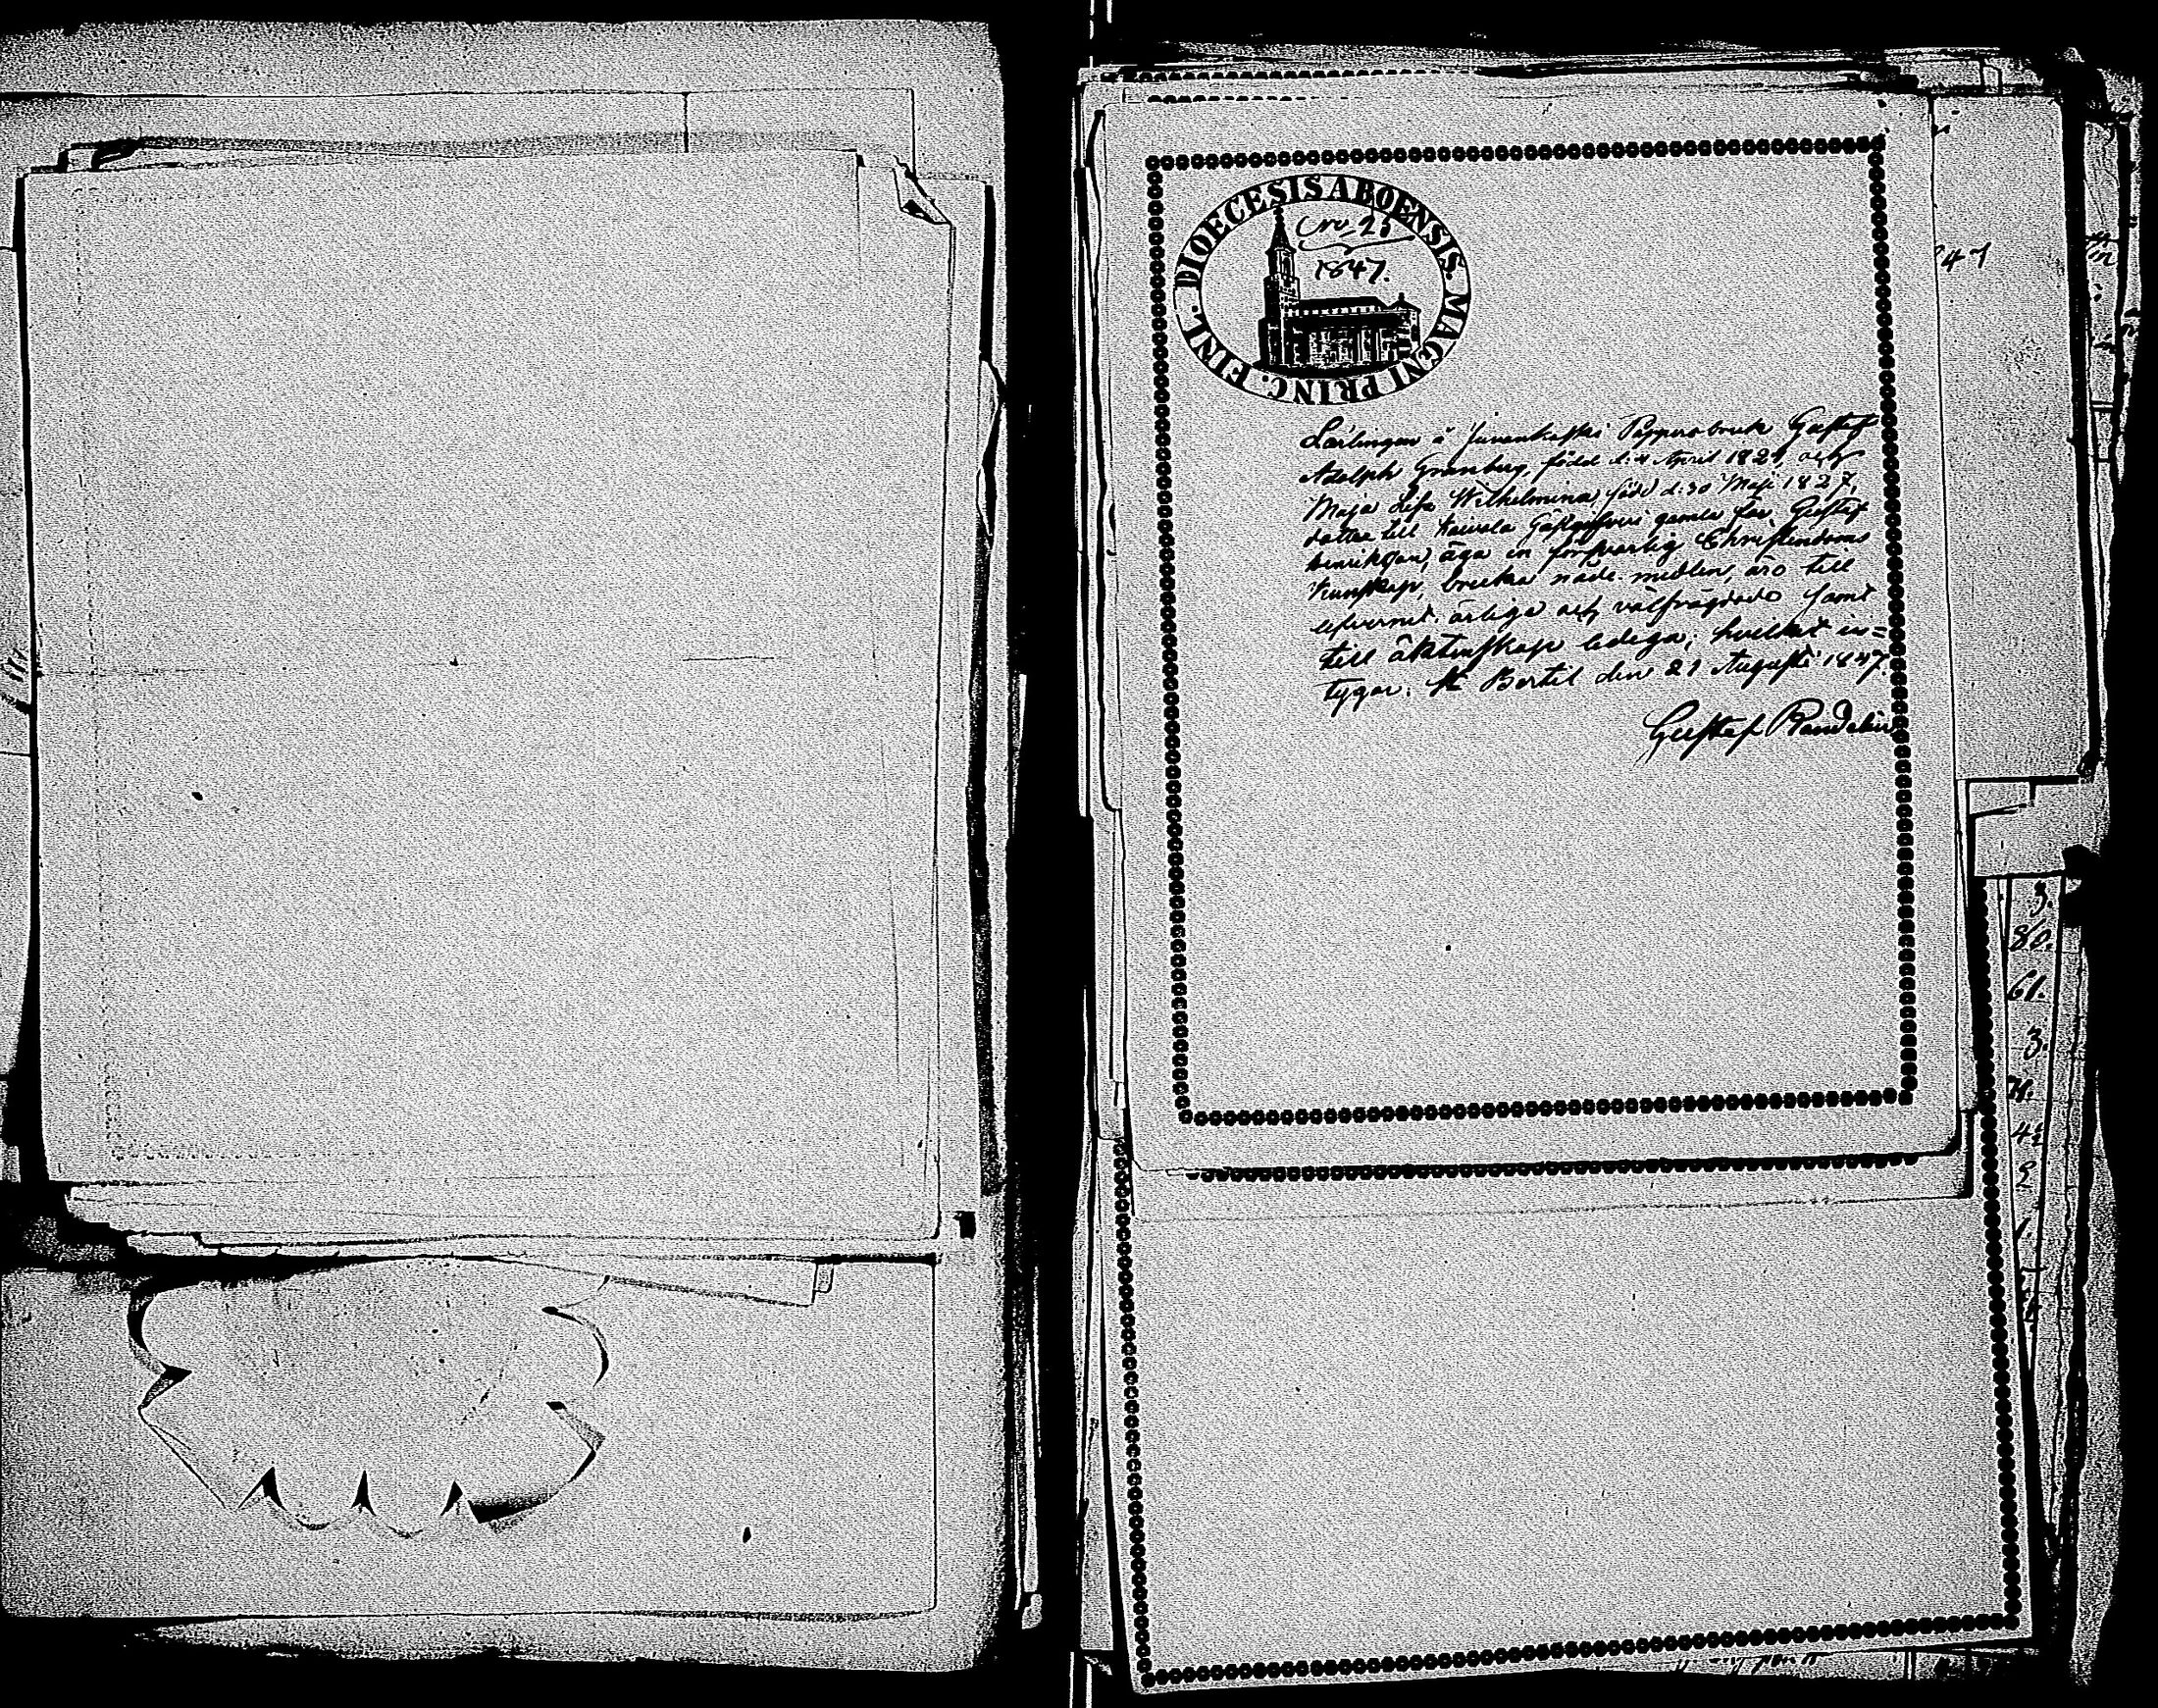 DIOECESIS ABOENSIS. MAGNI PRINC. FINL.
No 25
1847.
Lärlingen å Juvankoski Pappersbruk Gustaf
Adolph Granberg, född d: 4 April 1821, och
Maja Lisa Wilhelmina, född d: 30 Maji 1827,
dotter till Kaukola gamla far Gustaf
Henriksson, äga en försvarlig Christendoms
Kunskap, bruka nåde-medlen, äro till
lefvernet ärliga och välfrägdade samt
till äktenskap lediga; hvilket in=
tygar. St Bertil den 21 Augusti 1847.
Gustaf Randelin
847
3.
80.
61.
3.
4½
2
1.